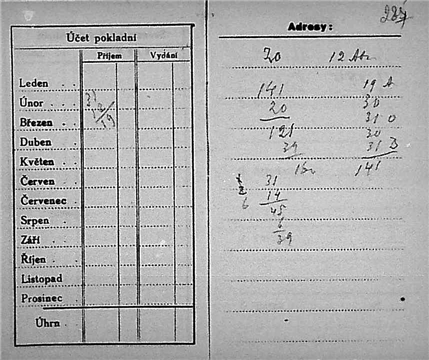 Účet pokladní
Příjem Vydání
Leden
Únor 31
Březen 12
Duben 19
Květen
Červen
Červenec
Srpen
Září
Říjen
Listopad
Prosinec
Úhrn
Adresy:
20 12
141 19
20 30
121 31 0
39 30
31 3
141
31
14
6 45
6
39